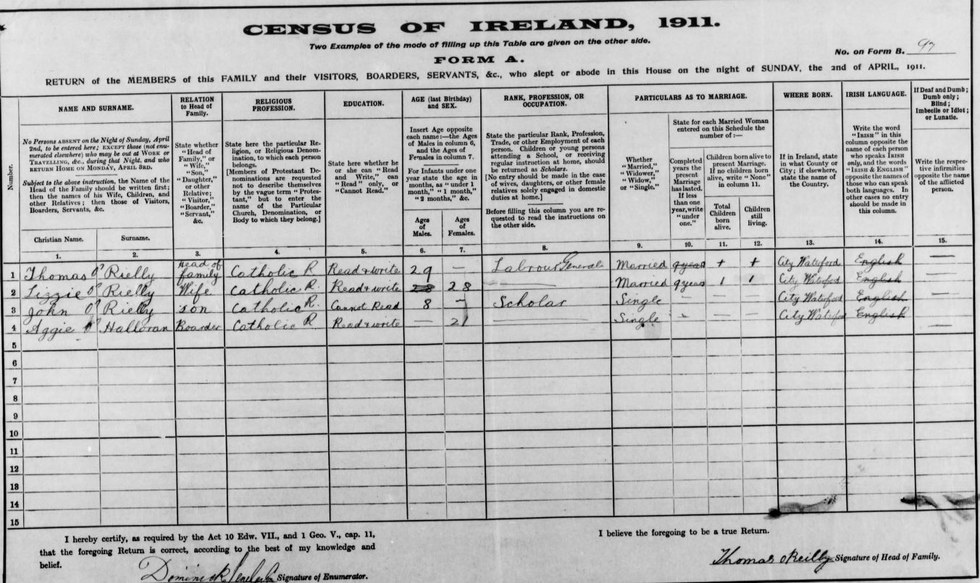 CENSUS OF IRELAND, 1911.
Two Examples of the mode of filling up this Table are given on the other side.
FORM A.
No. on Form B. 97
RETURN of the MEMBERS of this FAMILY and their VISITORS, BOARDERS, SERVANTS, &c., who slept or abode in this House on the night of SUNDAY, the 2nd of APRIL, 1911.
Number.
NAME AND SURNAME.
No Persons absent on the Night of Sunday, April 2nd, to be entered here; EXCEPT those (not enumerated elsewhere) who may be out at Work or Travelling, &c., during that Night, and who RETURN HOME ON MONDAY, APRIL 3RD.
Subject to the above instruction, the Name of the Head of the Family should be written first; then the names of his Wife, Children, and other Relatives; then those of Visitors, Boarders, Servants, &c.
Christian Name.
Surname.
RELATION to Head of Family.
State whether "Head of Family," or "Wife," "Son," "Daughter," or other Relative; "Visitor," "Boarder," "Servant," &c.
RELIGIOUS PROFESSION.
State here the particular Religion, or Religious Denomination, to which each person belongs.
[Members of Protestant Denominations are requested not to describe themselves by the vague term "Protestant," but to enter the name of the Particular Church, Denomination, or Body to which they belong.]
EDUCATION.
State here whether he or she can "Read and Write," can "Read" only, or "Cannot Read."
AGE (last Birthday) and SEX.
Insert Age opposite each name:—the Ages of Males in column 6, and the Ages of Females in column 7.
For Infants under one year state the age in months, as "under 1 month," "1 month," "2 months," &c.
Ages of Males.
Ages of Females.
RANK, PROFESSION, OR OCCUPATION.
State the particular Rank, Profession, Trade, or other Employment of each person. Children or young persons attending a School, or receiving regular instruction at home, should be returned as Scholars.
[No entry should be made in the case of wives, daughters, or other female relatives solely engaged in domestic duties at home.]
Before filling this column you are requested to read the instructions on the other side.
PARTICULARS AS TO MARRIAGE.
Whether "Married," "Widower," "Widow," or "Single."
State for each Married Woman entered on this Schedule the number of:—
Completed years the present Marriage has lasted. If less than one year, write "under one."
Children born alive to present Marriage. If no children born alive, write "None" in column 11.
Total Children born alive.
Children still living.
WHERE BORN.
If in Ireland, state in what County or City; if elsewhere, state the name of the Country.
IRISH LANGUAGE.
Write the word "Irish" in this column opposite the name of each person who speaks Irish only, and the words "Irish & English" opposite the names of those who can speak both languages. In other cases no entry should be made in this column.
If Deaf and Dumb; Dumb only; Blind; Imbecile or Idiot; or Lunatic.
Write the respective infirmities opposite the name of the afflicted person.
1. 2. 3. 4. 5. 6. 7. 8. 9. 10. 11. 12. 13. 14. 15.
1 Thomas O'Rielly Head of family Catholic R Read & write 29 — Labour General Married 9 years + + City Waterford English —
2 Lizzie O'Rielly Wife Catholic R Read & write 28 28 — Married 9 years 1 1 City Waterford English —
3 John O'Rielly Son Catholic R Cannot Read 8 — Scholar Single — — — City Waterford English —
4 Aggie O'Halloran Boarder Catholic R Read & write — 21 Single — — — City Waterford English —
5
6
7
8
9
10
11
12
13
14
15
I hereby certify, as required by the Act 10 Edw. VII., and 1 Geo. V., cap. 11,
that the foregoing Return is correct, according to the best of my knowledge and
belief.
Signature of Enumerator.
I believe the foregoing to be a true Return.
Thomas O'Reilly Signature of Head of Family.